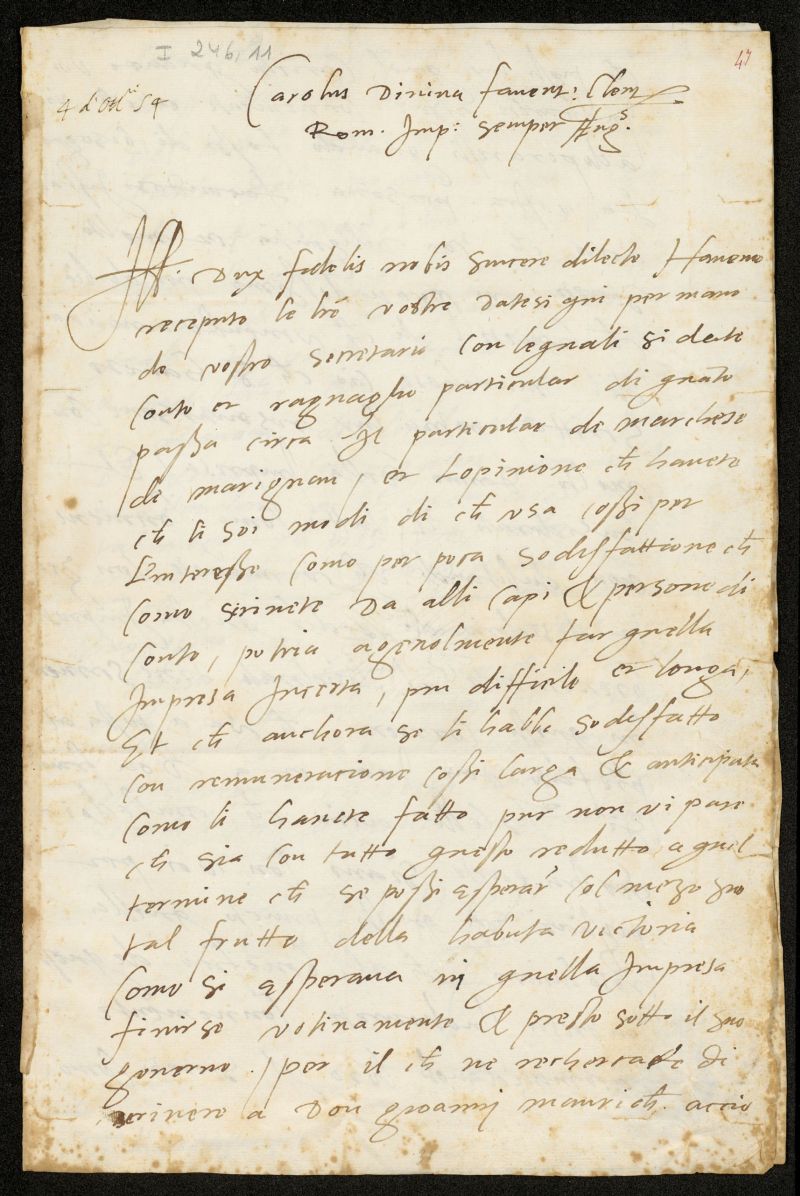 I 246, 11
47
4 d'Ott. 54
Carolus Divina favent: Clem.
Rom. Imp: semper Aug.s
Ill. Dux fidelis nobis sincere dilecte Havemo
receputo le lr̃e vostre datesi qui per mano
de vostro secretario con le quali si date
conto et ragnaglio particular di quãto
passa circa il particular de marchese
di marignan, et l'opinione ch̃ havete
ch̃ li soi modi di ch̃ usa cossi per
l'interesse como per poca sodisfattione ch̃
como scrivete da alli capi & persone di
conto, potria agevolmente far quella
Impresa Incerta, piu difficile et longa,
Et ch̃ anchora se li habbi sodisfatto
con remuneracione cossi larga & anticipata
como li havete fatto pur non vi pare
ch̃ sia con tutto questo redutto a quel
termine ch̃ se possi asperar col mezo suo
tal frutto della habuta victoria
como si asperava in quella Impresa
finirse votivamente & presto sotto il suo
governo, per il ch̃ ne rechercate di
scrivere a Don gioanni maurich̃ accio